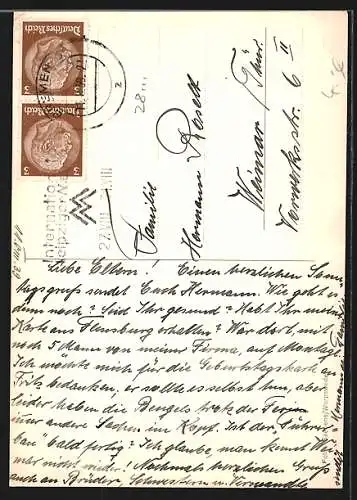 Deutsches Reich
3 3
Deutsches Reich
3 3
28 III
Familie
Hermann
Weimar Thür.
Vorwerksstr. 6 II
Internatio
Leipziger
27. III
Liebe Eltern! Einen herzlichen Sonn-
tagsgruß sendet Euch Hermann. Wie geht es
denn noch? Seid Ihr gesund? Habt Ihr meine
Karte aus Flensburg erhalten? War dort, mit
noch 5 Mann von meiner Firma, auf Montage.
Ich möchte mich für die Geburtstagskarte an
Fritz bedanken, er sollte es selbst tun, aber
leider haben die Bengels trotz der Ferien
nur andere Sachen im Kopf. Ist der "Führer-
bau" bald fertig? Ich glaube, man kennt Wei-
mar nicht wieder! Nochmals herzlichen Gruß
auch an Brüder, Schwestern u. Verwandte